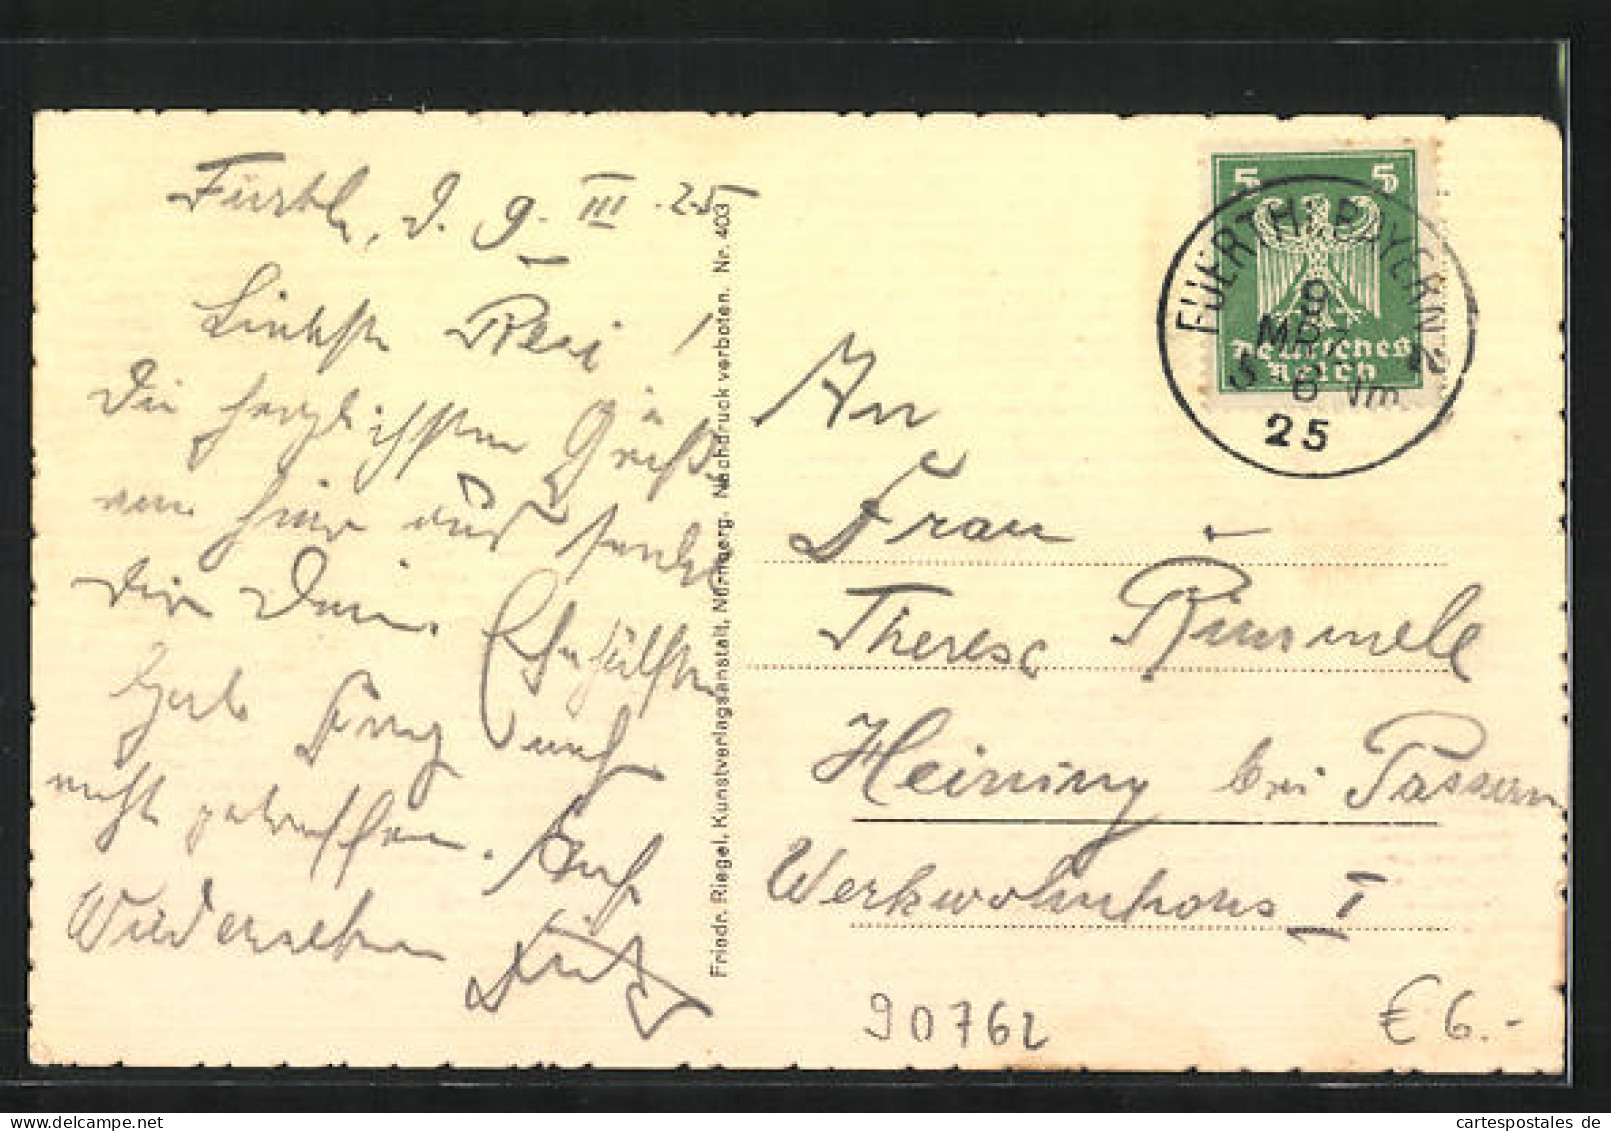 Fürth, d. 9. III. 25
Liebste Resi!
Die herzlichsten Grüße
von hier aus sendet
Dir Dein
Hab Franz auch
nicht getroffen. Auf
Wiedersehen Fritz
Friedr. Riegel, Kunstverlagsanstalt, Nürnberg. Nachdruck verboten. Nr. 403
5 5
Deutsches
Reich
FUERTH i. BAYERN
9
MRZ
5 6 Vm 2
25
An
Frau
Therese Rümmele
Heining bei Passau
Werkwohnhaus I
90762
€ 6.-
cartespostales de